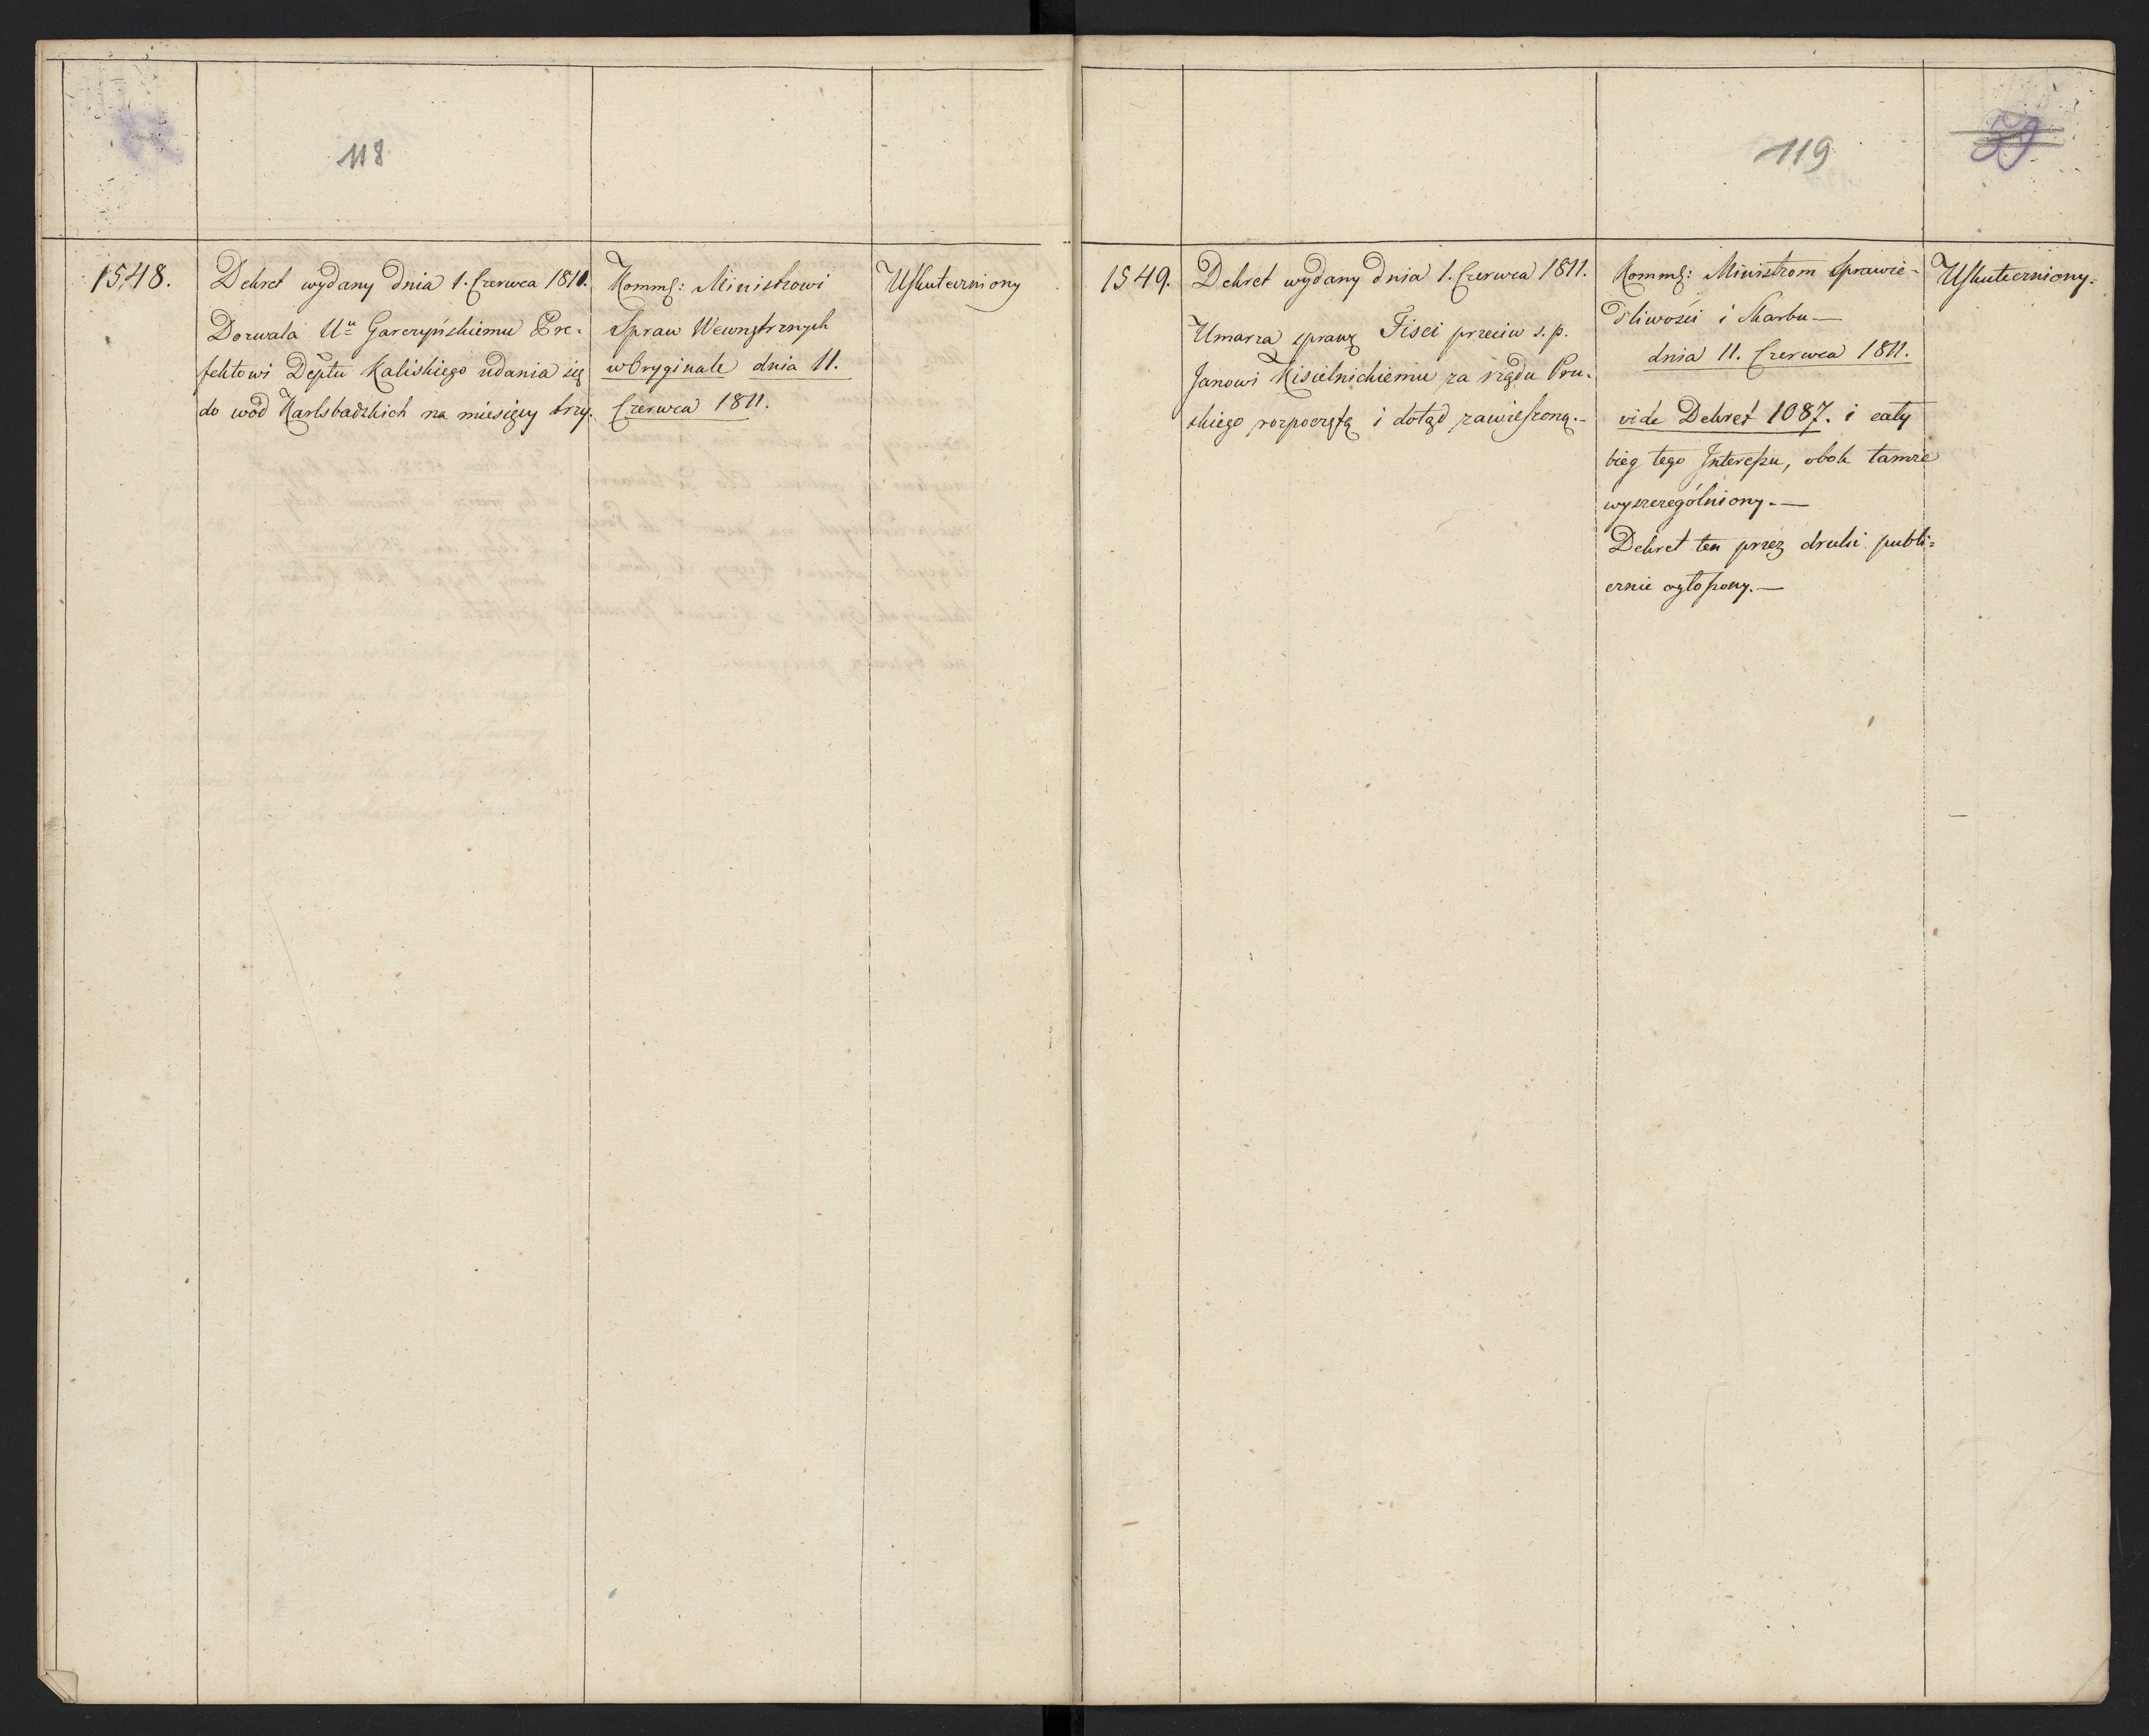 118
1548.
Dekret wydany dnia 1. Czerwca 1811.
Dozwala Uu Garczyńskiemu Pre-
fektowi Deptu Kaliskiego udania się
do wód Karlsbadzkich na miesięcy trzy.
Kommſ: Ministrowi
Spraw Wewnętrznych
w Oryginale dnia 11.
Czerwca 1811.
Uſkuteczniony
119
59
1549.
Dekret wydany dnia 1. Czerwca 1811.
Umarza sprawę Fisci przeciw s. p.
Janowi Kisielnickiemu za rządu Pru-
skiego rozpoczętą i dotąd zawieſzoną.-
Kommſ: Ministrom Sprawie-
dliwości i Skarbu—
dnia 11. Czerwca 1811.
vide Dekret 1087. i cały
bieg tego Jntereſsu, obok tamże
wyszczególniony.—
Dekret ten przez druki publi=
cznie ogłoſzony.—
Uſkuteczniony.